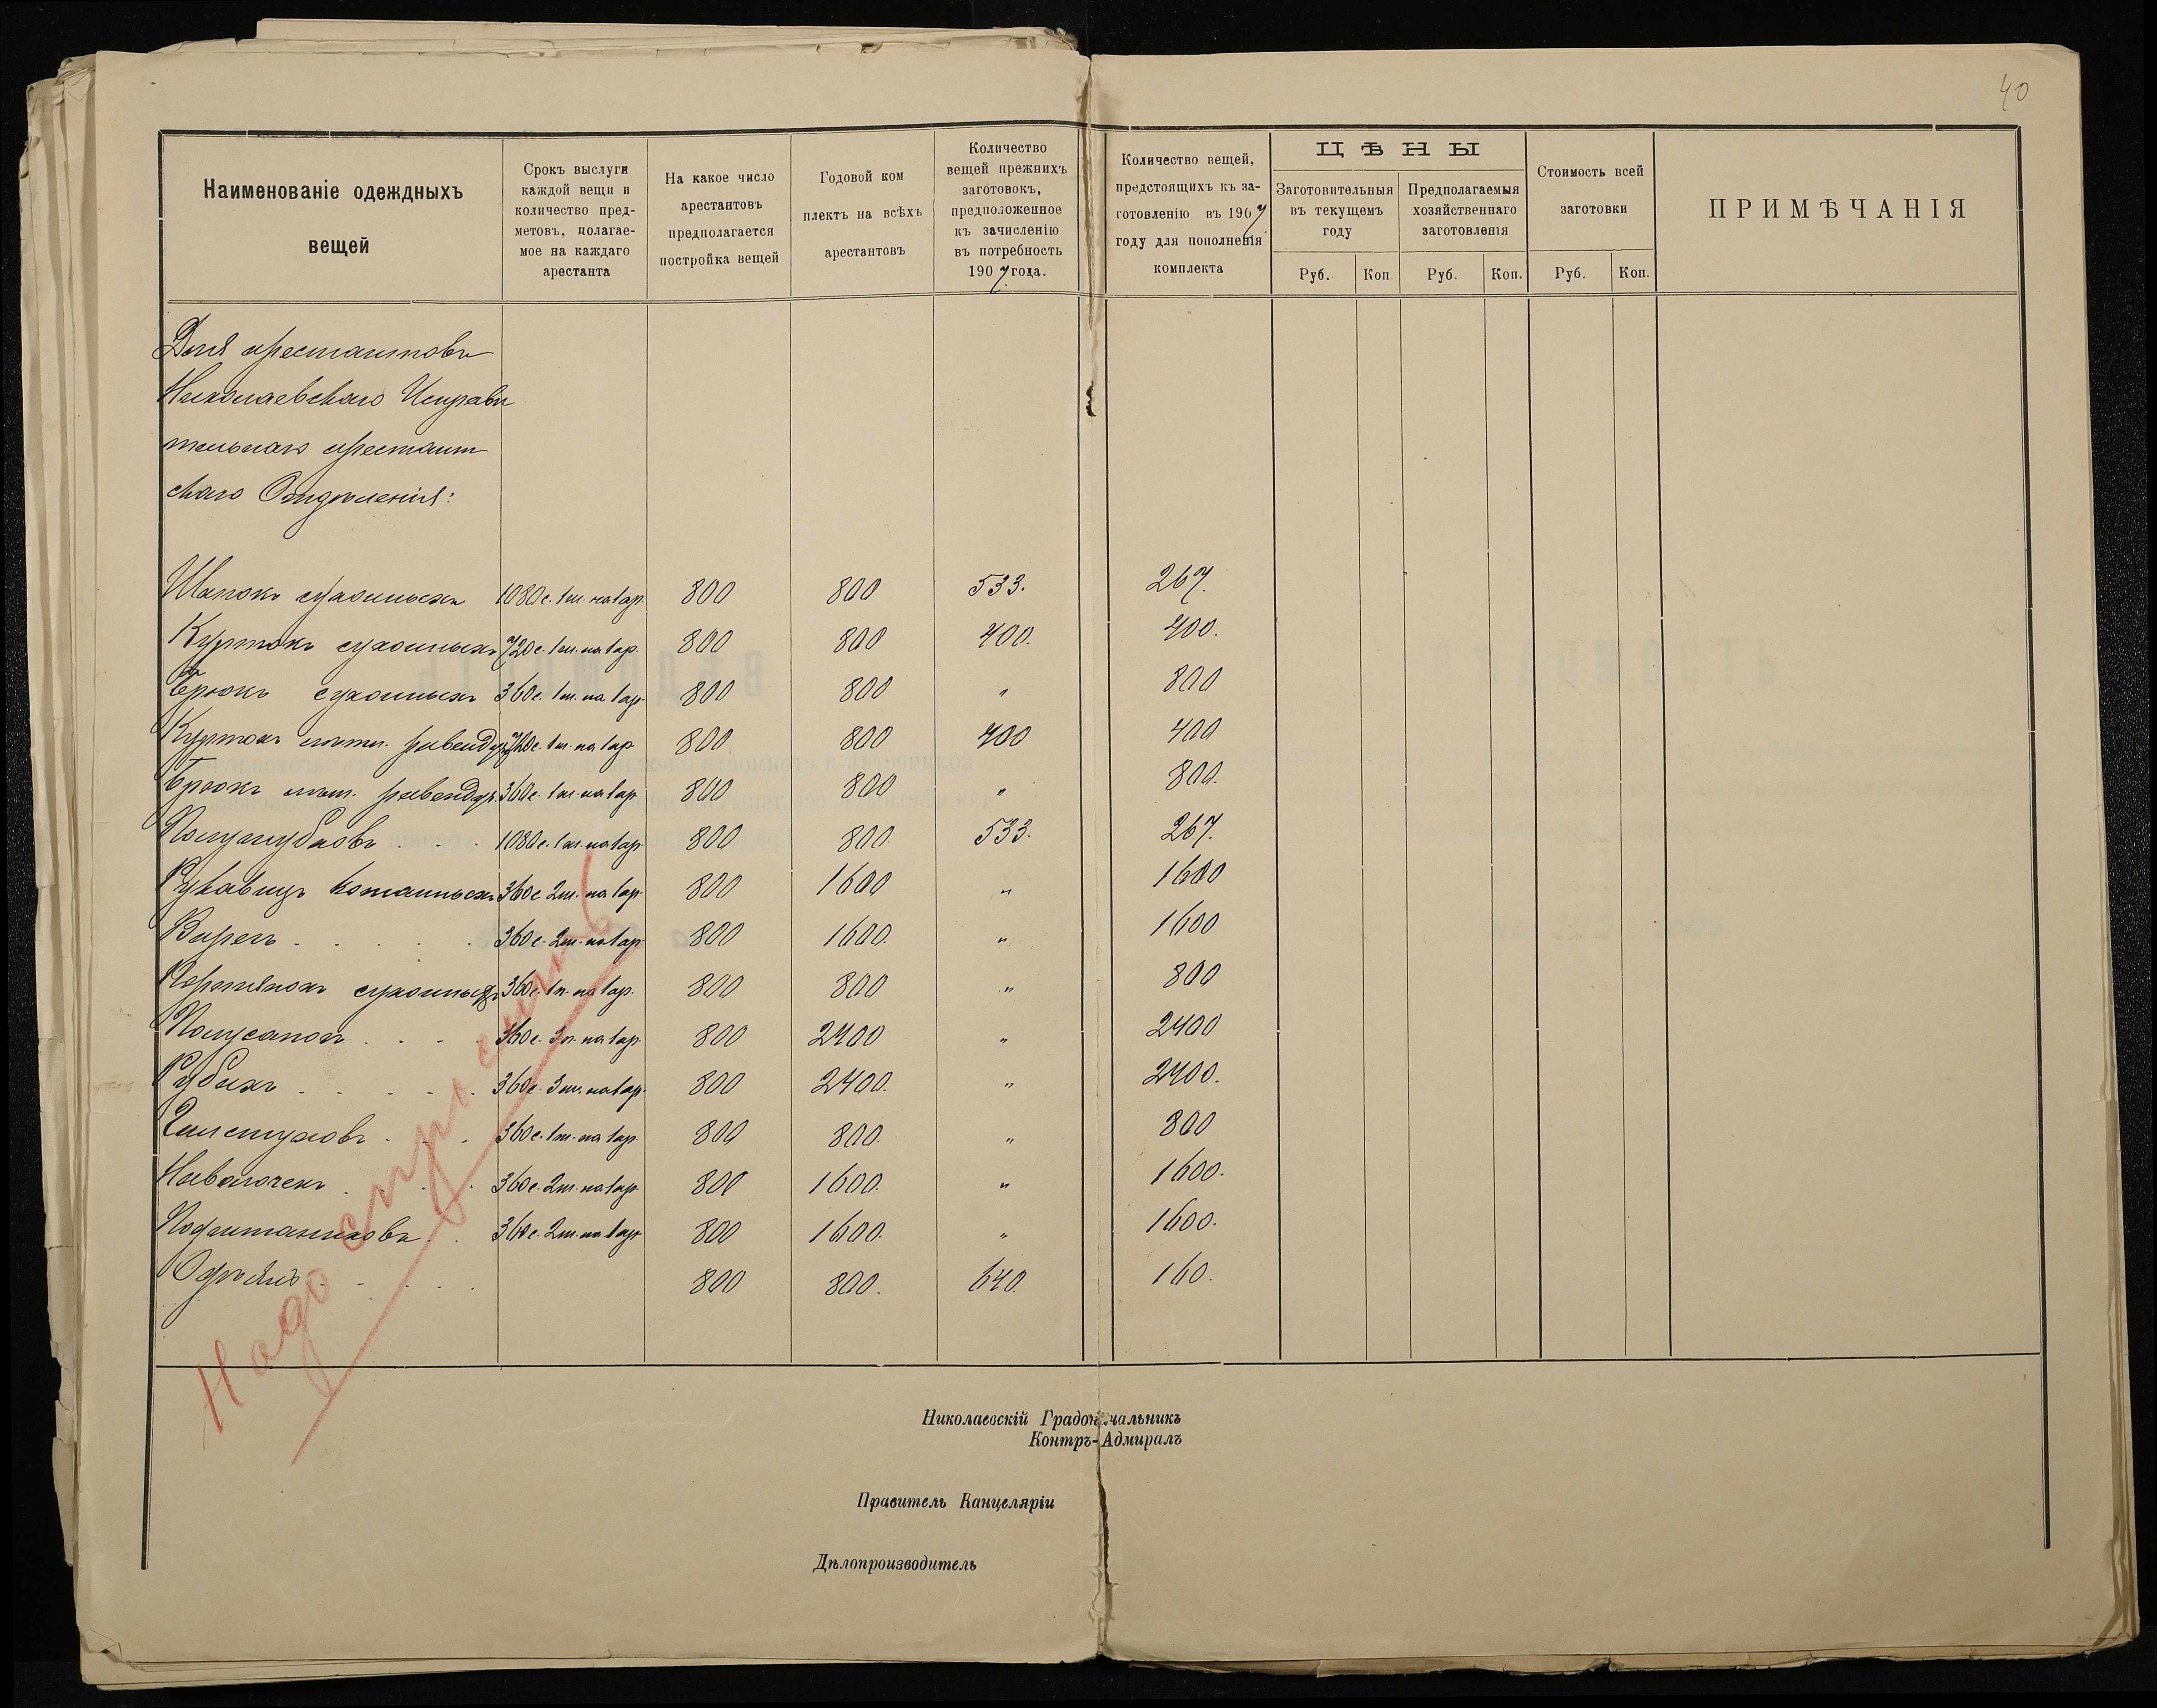 40
Наименованіе одеждныхъ
вещей
Срокъ выслуги
каждой вещи и
количество пред-
метовъ, полагае-
мое на каждаго
арестанта
На какое число
арестантовъ
предполагается
постройка вещей
Годовой ком
плектъ на всѣхъ
арестантовъ
Количество
вещей прежнихъ
заготовокъ,
предположенное
къ зачисленію
въ потребность
1907 года.
Количество вещей,
предстоящихъ къ за-
готовленію въ 1907
году для пополненія
комплекта
ЦѢНЫ
Заготовительныя
въ текущемъ
году
Предполагаемыя
хозяйственнаго
заготовленія
Руб. Коп. Руб. Коп.
Стоимость всей
заготовки
Руб. Коп.
ПРИМѢЧАНІЯ
Для арестантовъ
Николаевскаго Исправи
тельнаго арестант
скаго Отдѣленія:
Шапокъ суконныхъ 1080 с. 1 ш. на 1 ар. 800 800 533. 267.
Куртокъ суконныхъ 720 с. 1 ш. на 1 ар. 800 800 400. 400.
Брюкъ суконныхъ 360 с. 1 ш. на 1 ар. 800 800 " 800
Куртокъ лѣтн. равендук. 720 с. 1 ш. на 1 ар. 800 800 400 400
Брюкъ лѣтн. равендук. 360 с. 1 ш. на 1 ар. 800 800 " 800.
Полушубковъ . . . 1080 с. 1 ш. на 1 ар. 800 800. 533. 267.
Рукавицъ 360 с. 2 ш. на 1 ар. 800 1600 " 1600
Варегъ . . . . . 360 с. 2 ш. на 1 ар. 800 1600. " 1600
Портянокъ суконныхъ 360 с. 1 п. на 1 ар. 800 800 " 800
Полусапогъ . . . . 360 с. 3 п. на 1 ар. 800 2400 " 2400
Рубахъ . . . . . 360 с. 3 ш. на 1 ар. 800 2400. " 2400.
Галстуховъ . . . 360 с. 1 ш. на 1 ар. 800 800. " 800
Наволочекъ . . . . 360 с. 2 ш. на 1 ар. 800 1600. " 1600.
Подштаниковъ . . 360 с. 2 ш. на 1 ар. 800 1600. " 1600.
Одѣялъ . . . . . 800 800. 640. 160.
Надо
Николаевскій Градоначальникъ
Контръ-Адмиралъ
Правитель Канцеляріи
Дѣлопроизводитель